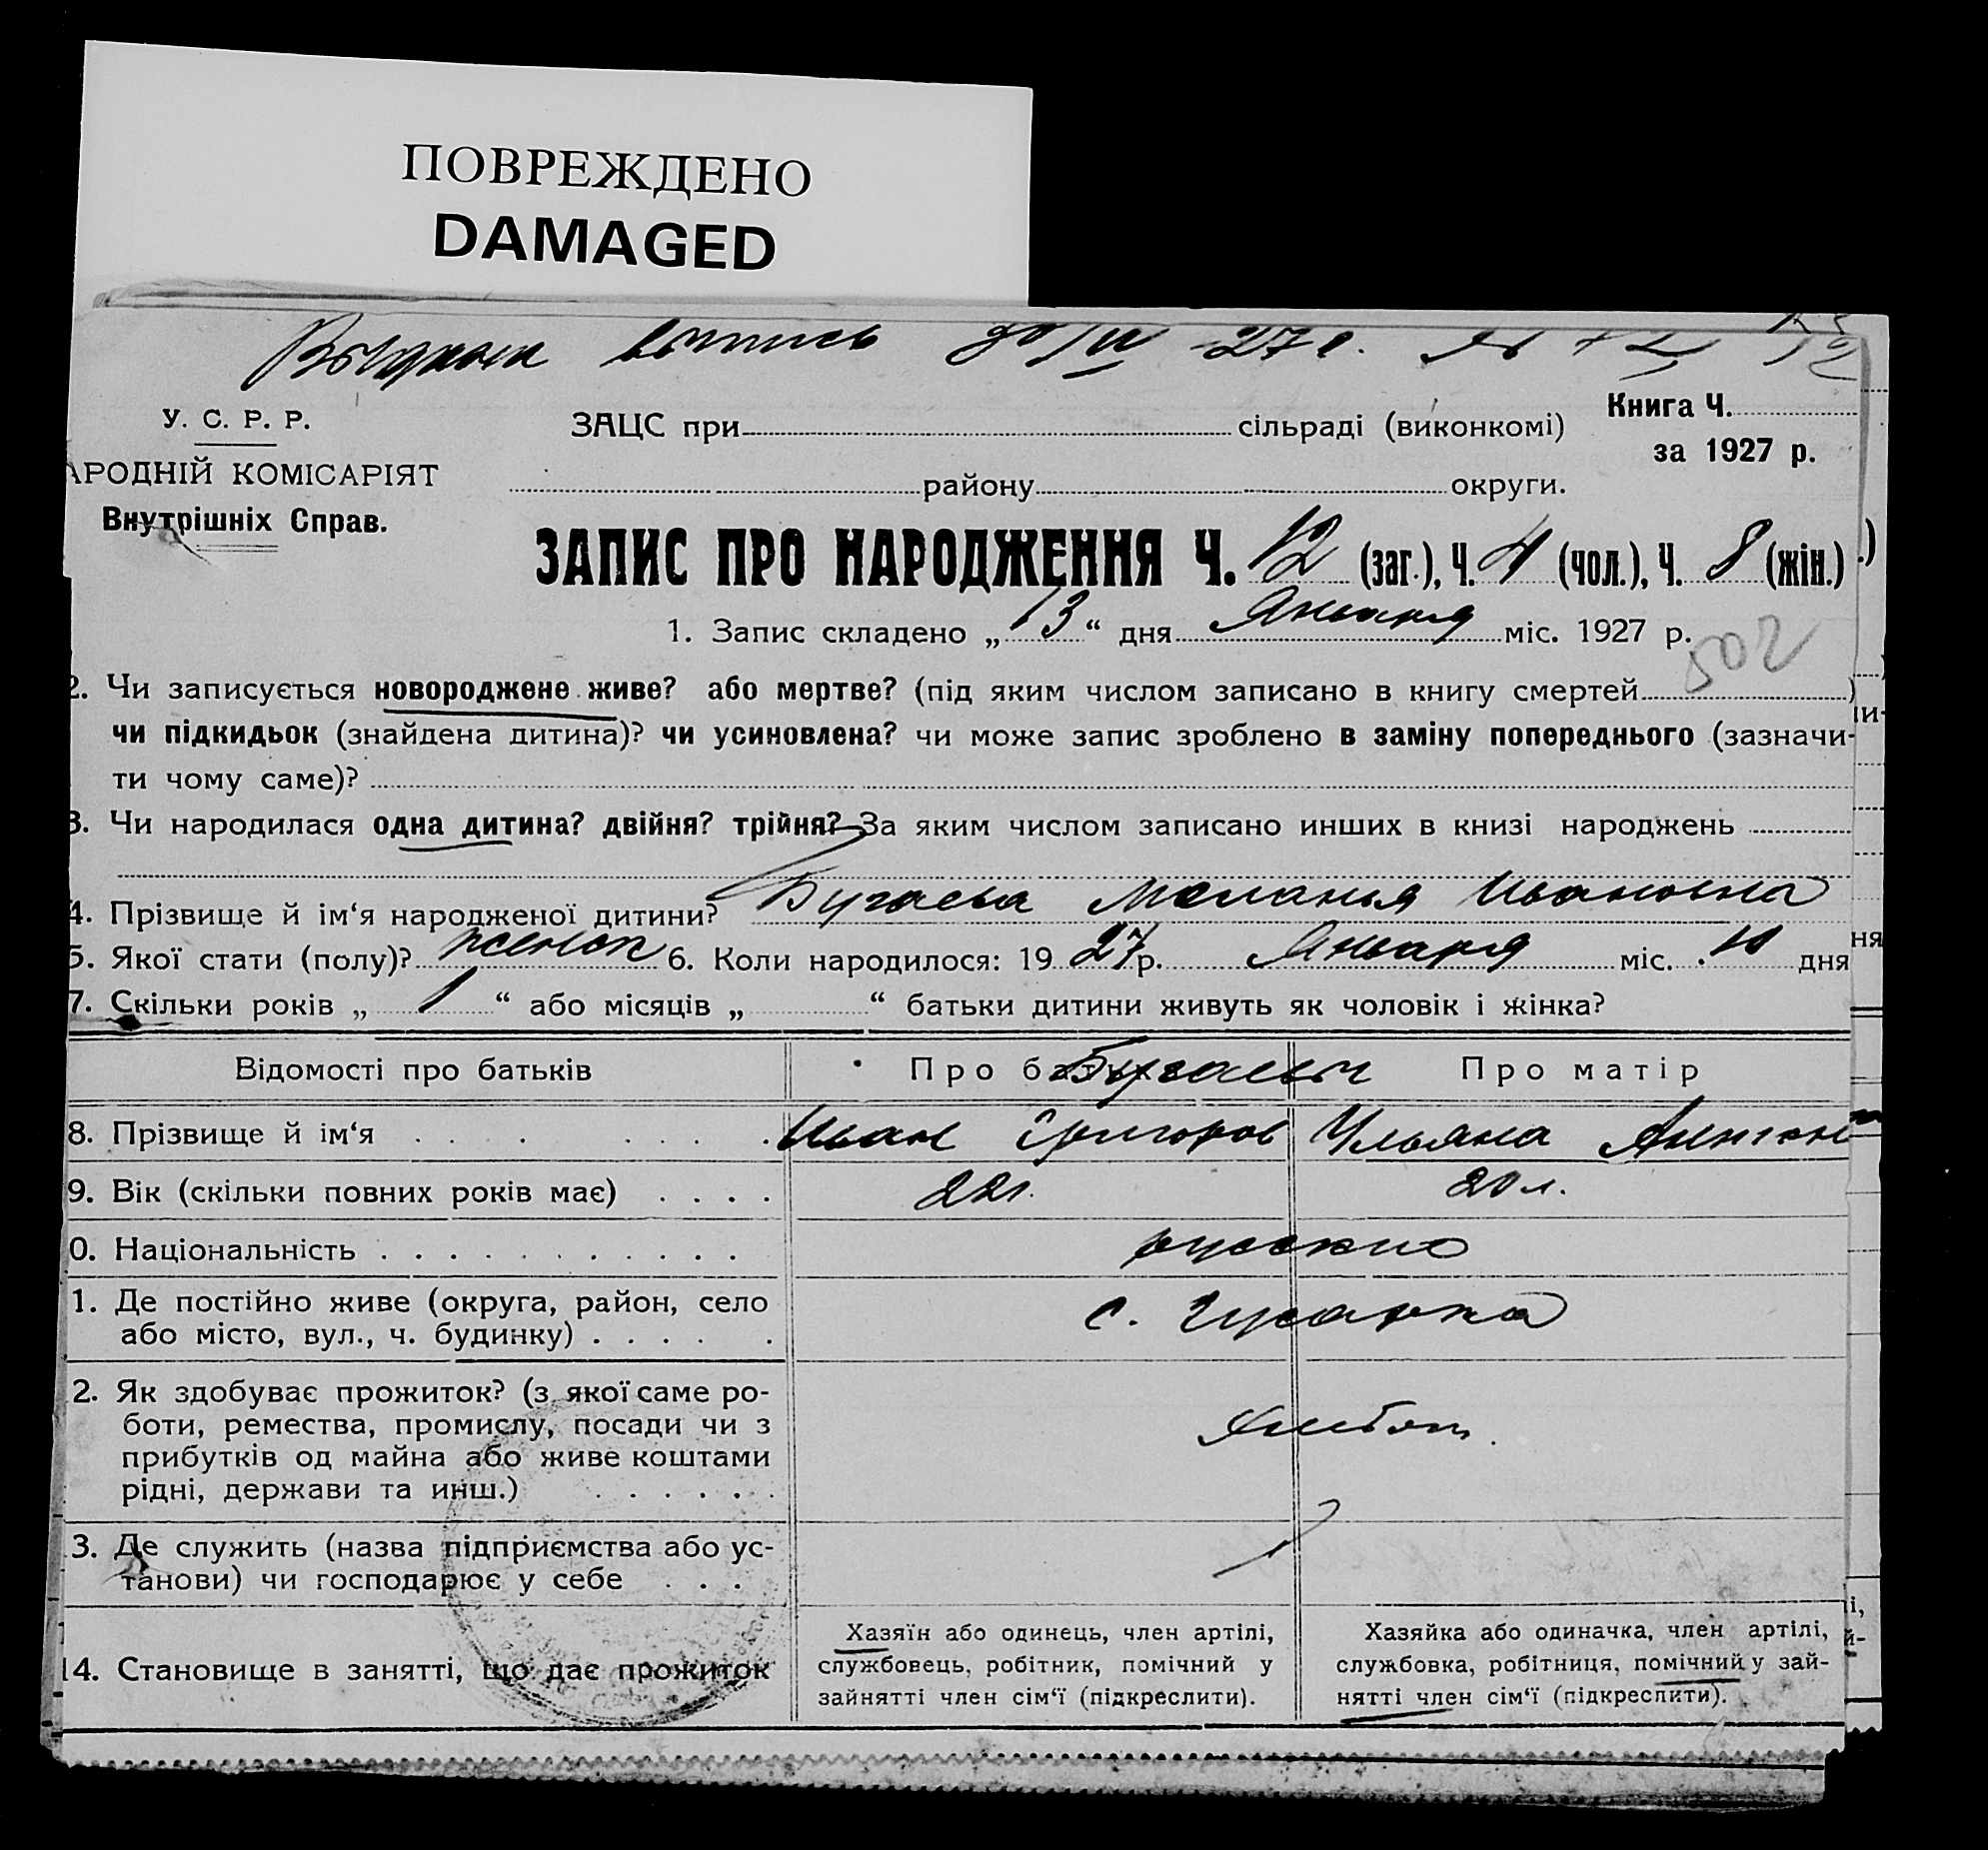 ПОВРЕЖДЕНО
DAMAGED
выпись 27 г. №
У. С. Р. Р.
АРОДНІЙ КОМІСАРІЯТ
Внутрішніх Справ.
ЗАЦС при сільраді (виконкомі)
Книга Ч.
за 1927 р.
району округи.
ЗАПИС ПРО НАРОДЖЕННЯ Ч. 12 (заг.), Ч. 4 (чол.), Ч. 8 (жін.)
1. Запис складено „ 13 “ дня Января міс. 1927 р.
502
2. Чи записується новороджене живе? або мертве? (під яким числом записано в книгу смертей )
чи підкидьок (знайдена дитина)? чи усиновлена? чи може запис зроблено в заміну попереднього (зазначи-
ти чому саме)?
3. Чи народилася одна дитина? двійня? трійня? За яким числом записано инших в книзі народжень
4. Прізвище й ім‘я народженої дитини? Бугаева Меланья Ивановна
5. Якої стати (полу)? женск 6. Коли народилося: 19 27 р. Января міс. 10 дня
7. Скільки років „ 1 “ або місяців „ “ батьки дитини живуть як чоловік і жінка?
Відомості про батьків Про батька Про матір
Бугаевы
8. Прізвище й ім‘я Иван Григоров Ульяна Антон
9. Вік (скільки повних років має) 22 г. 20 л.
0. Національність русские
1. Де постійно живе (округа, район, село
або місто, вул., ч. будинку) с.
2. Як здобуває прожиток? (з якої саме ро-
боти, ремества, промислу, посади чи з
прибутків од майна або живе коштами
рідні, держави та инш.)
хлебоп.
3. Де служить (назва підприємства або ус-
танови) чи господарює у себе
14. Становище в занятті, що дає прожиток
Хазяїн або одинець, член артілі,
службовець, робітник, помічний у
зайнятті член сім‘ї (підкреслити).
Хазяйка або одиначка, член артілі,
службовка, робітниця, помічний у зай-
нятті член сім‘ї (підкреслити).